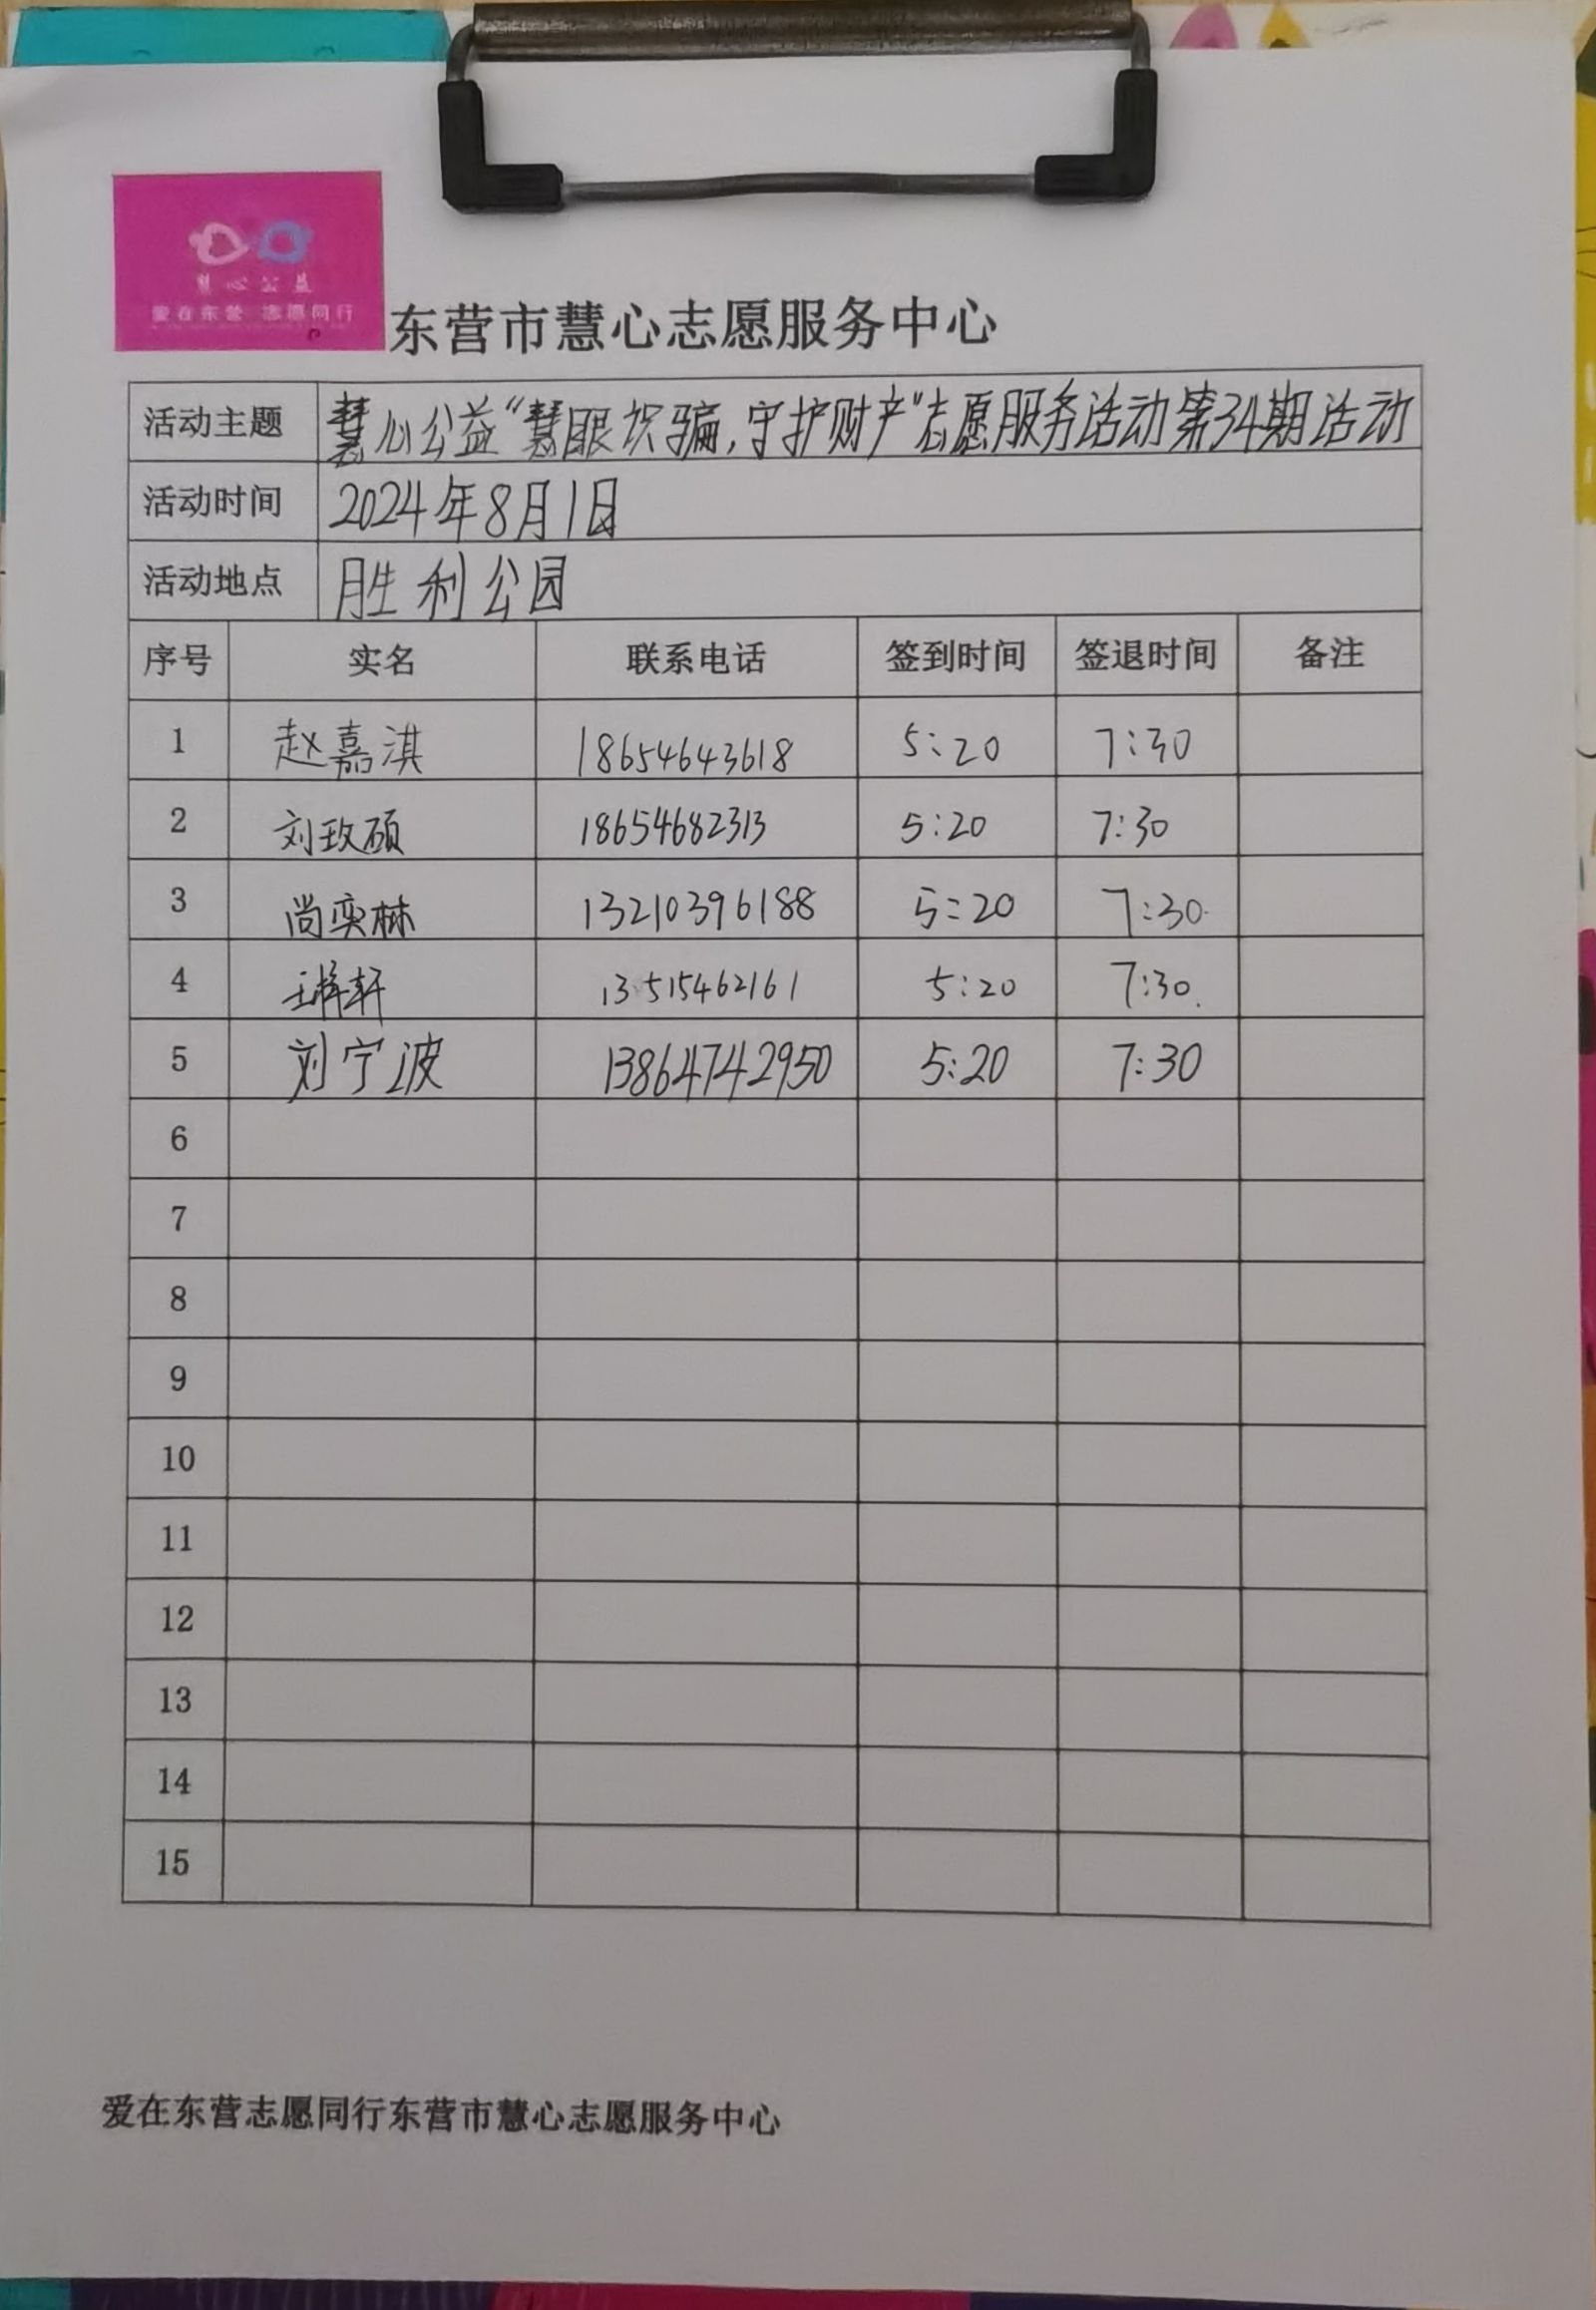 慧心公益
爱在东营 志愿同行
东营市慧心志愿服务中心
活动主题 慧心公益“慧眼识骗,守护财产”志愿服务活动第34期活动
活动时间 2024年8月1日
活动地点 胜利公园
序号 实名 联系电话 签到时间 签退时间 备注
1 赵嘉淇 18654643618 5:20 7:30
2 刘玫硕 18654682313 5:20 7:30
3 尚奕林 13210396188 5:20 7:30
4 13515462161 5:20 7:30
5 刘宁波 13864742950 5:20 7:30
6
7
8
9
10
11
12
13
14
15
爱在东营志愿同行东营市慧心志愿服务中心